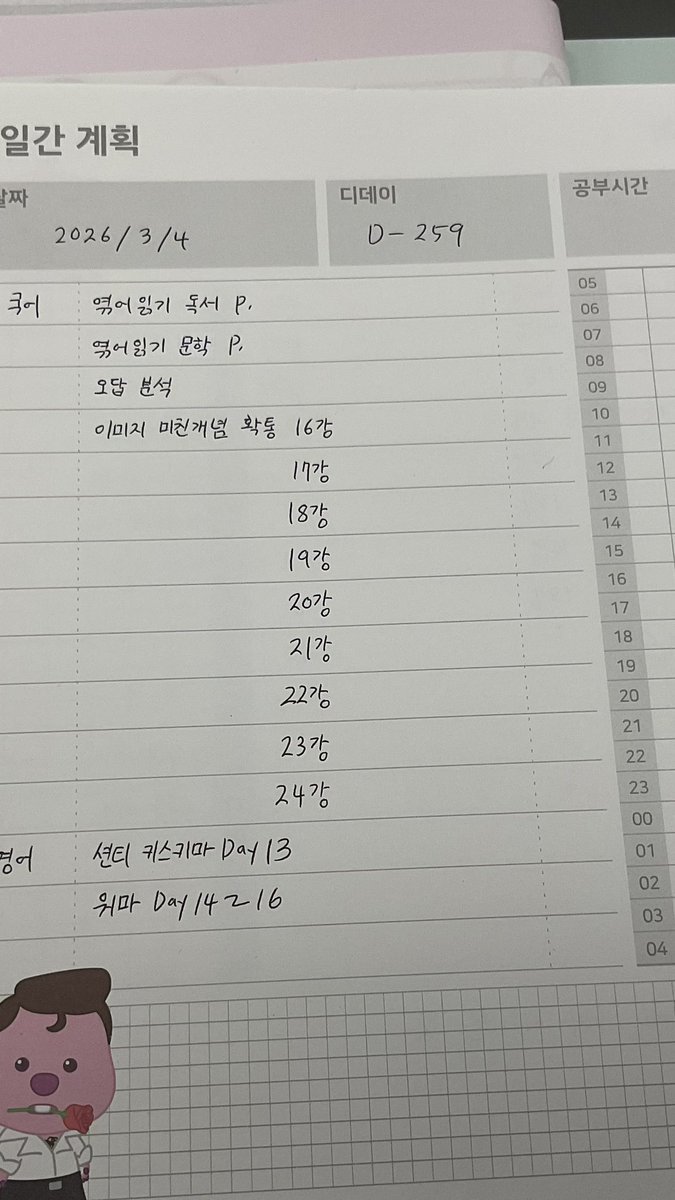 일간 계획
날짜 디데이 공부시간
2026/3/4 D-259
국어 엮어읽기 독서 P.
엮어읽기 문학 P.
오답 분석
이미지 미친개념 확통 16강
17강
18강
19강
20강
21강
22강
23강
24강
영어 션티 키스키마 Day 13
워마 Day 14~16
05
06
07
08
09
10
11
12
13
14
15
16
17
18
19
20
21
22
23
00
01
02
03
04